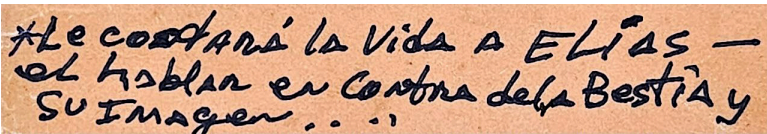 *Le costará la Vida A ELÍAS —
el hablar en Contra de la Bestia y
SU IMAgen....